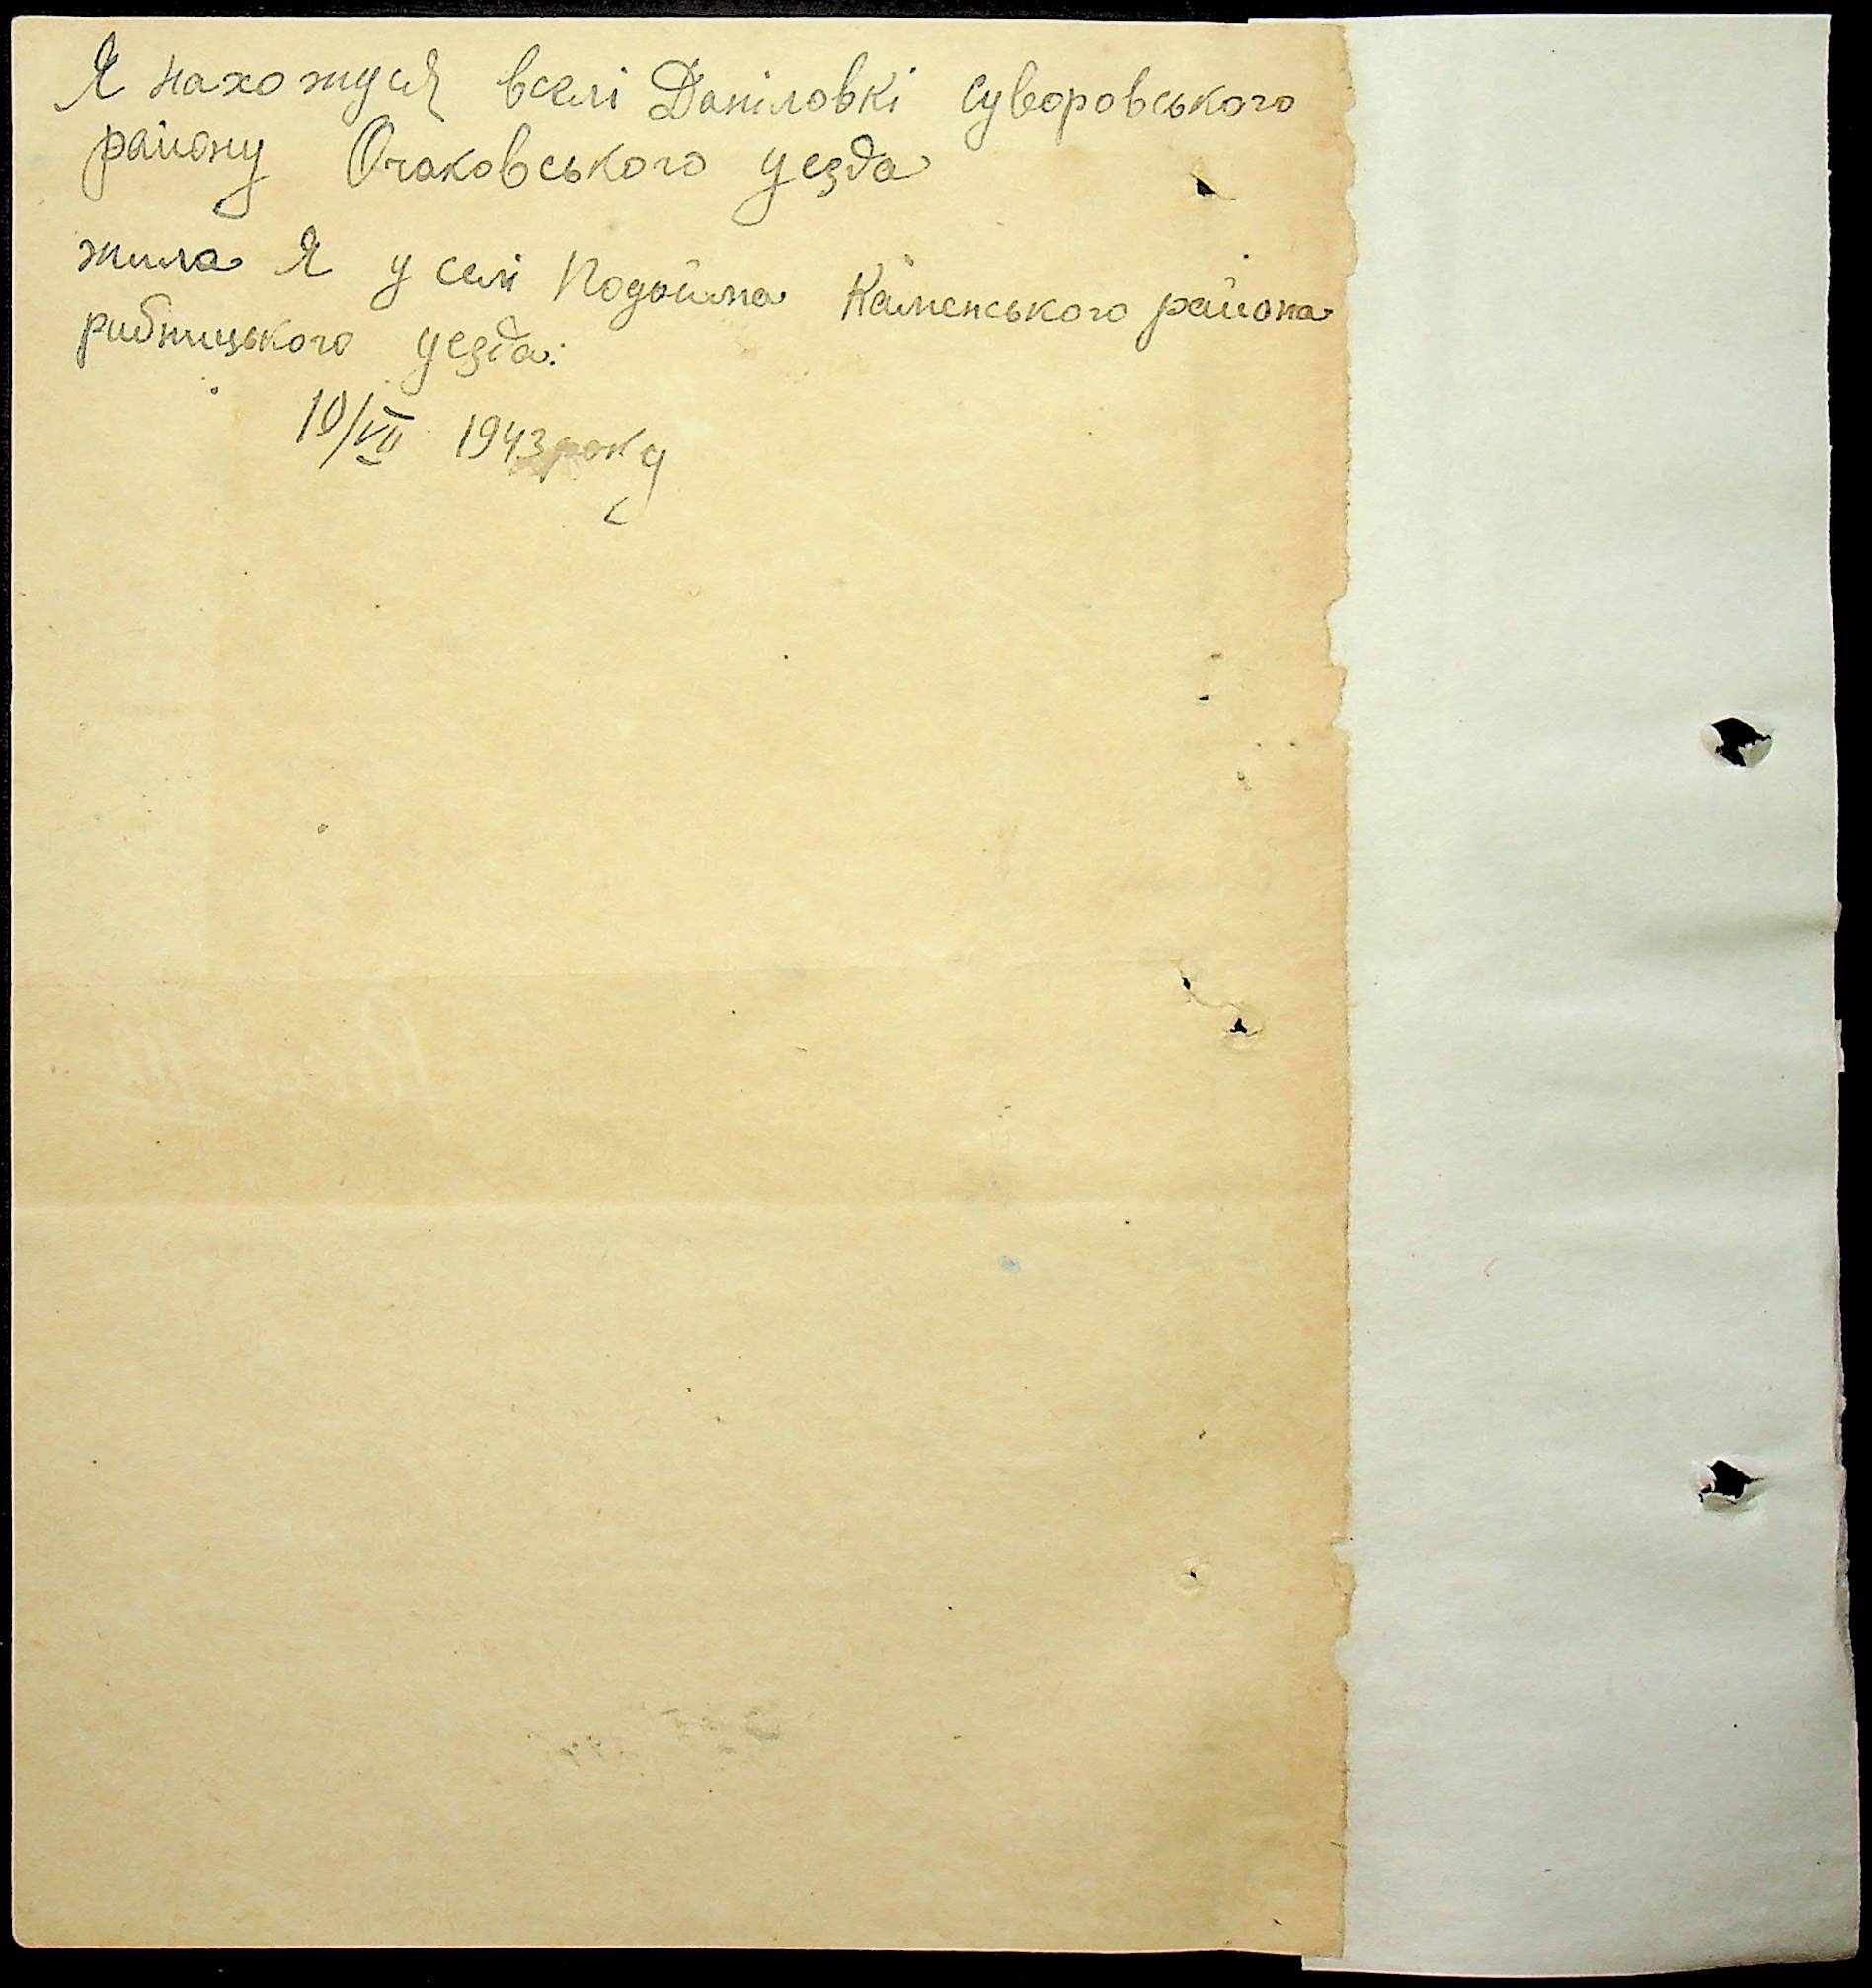 Я нахожуся вселі Даніловкі Суворовського
району Очаковського уезда
жила Я у селі Подойма Каменського района
рибницького уезда.
10/VII 1943 року